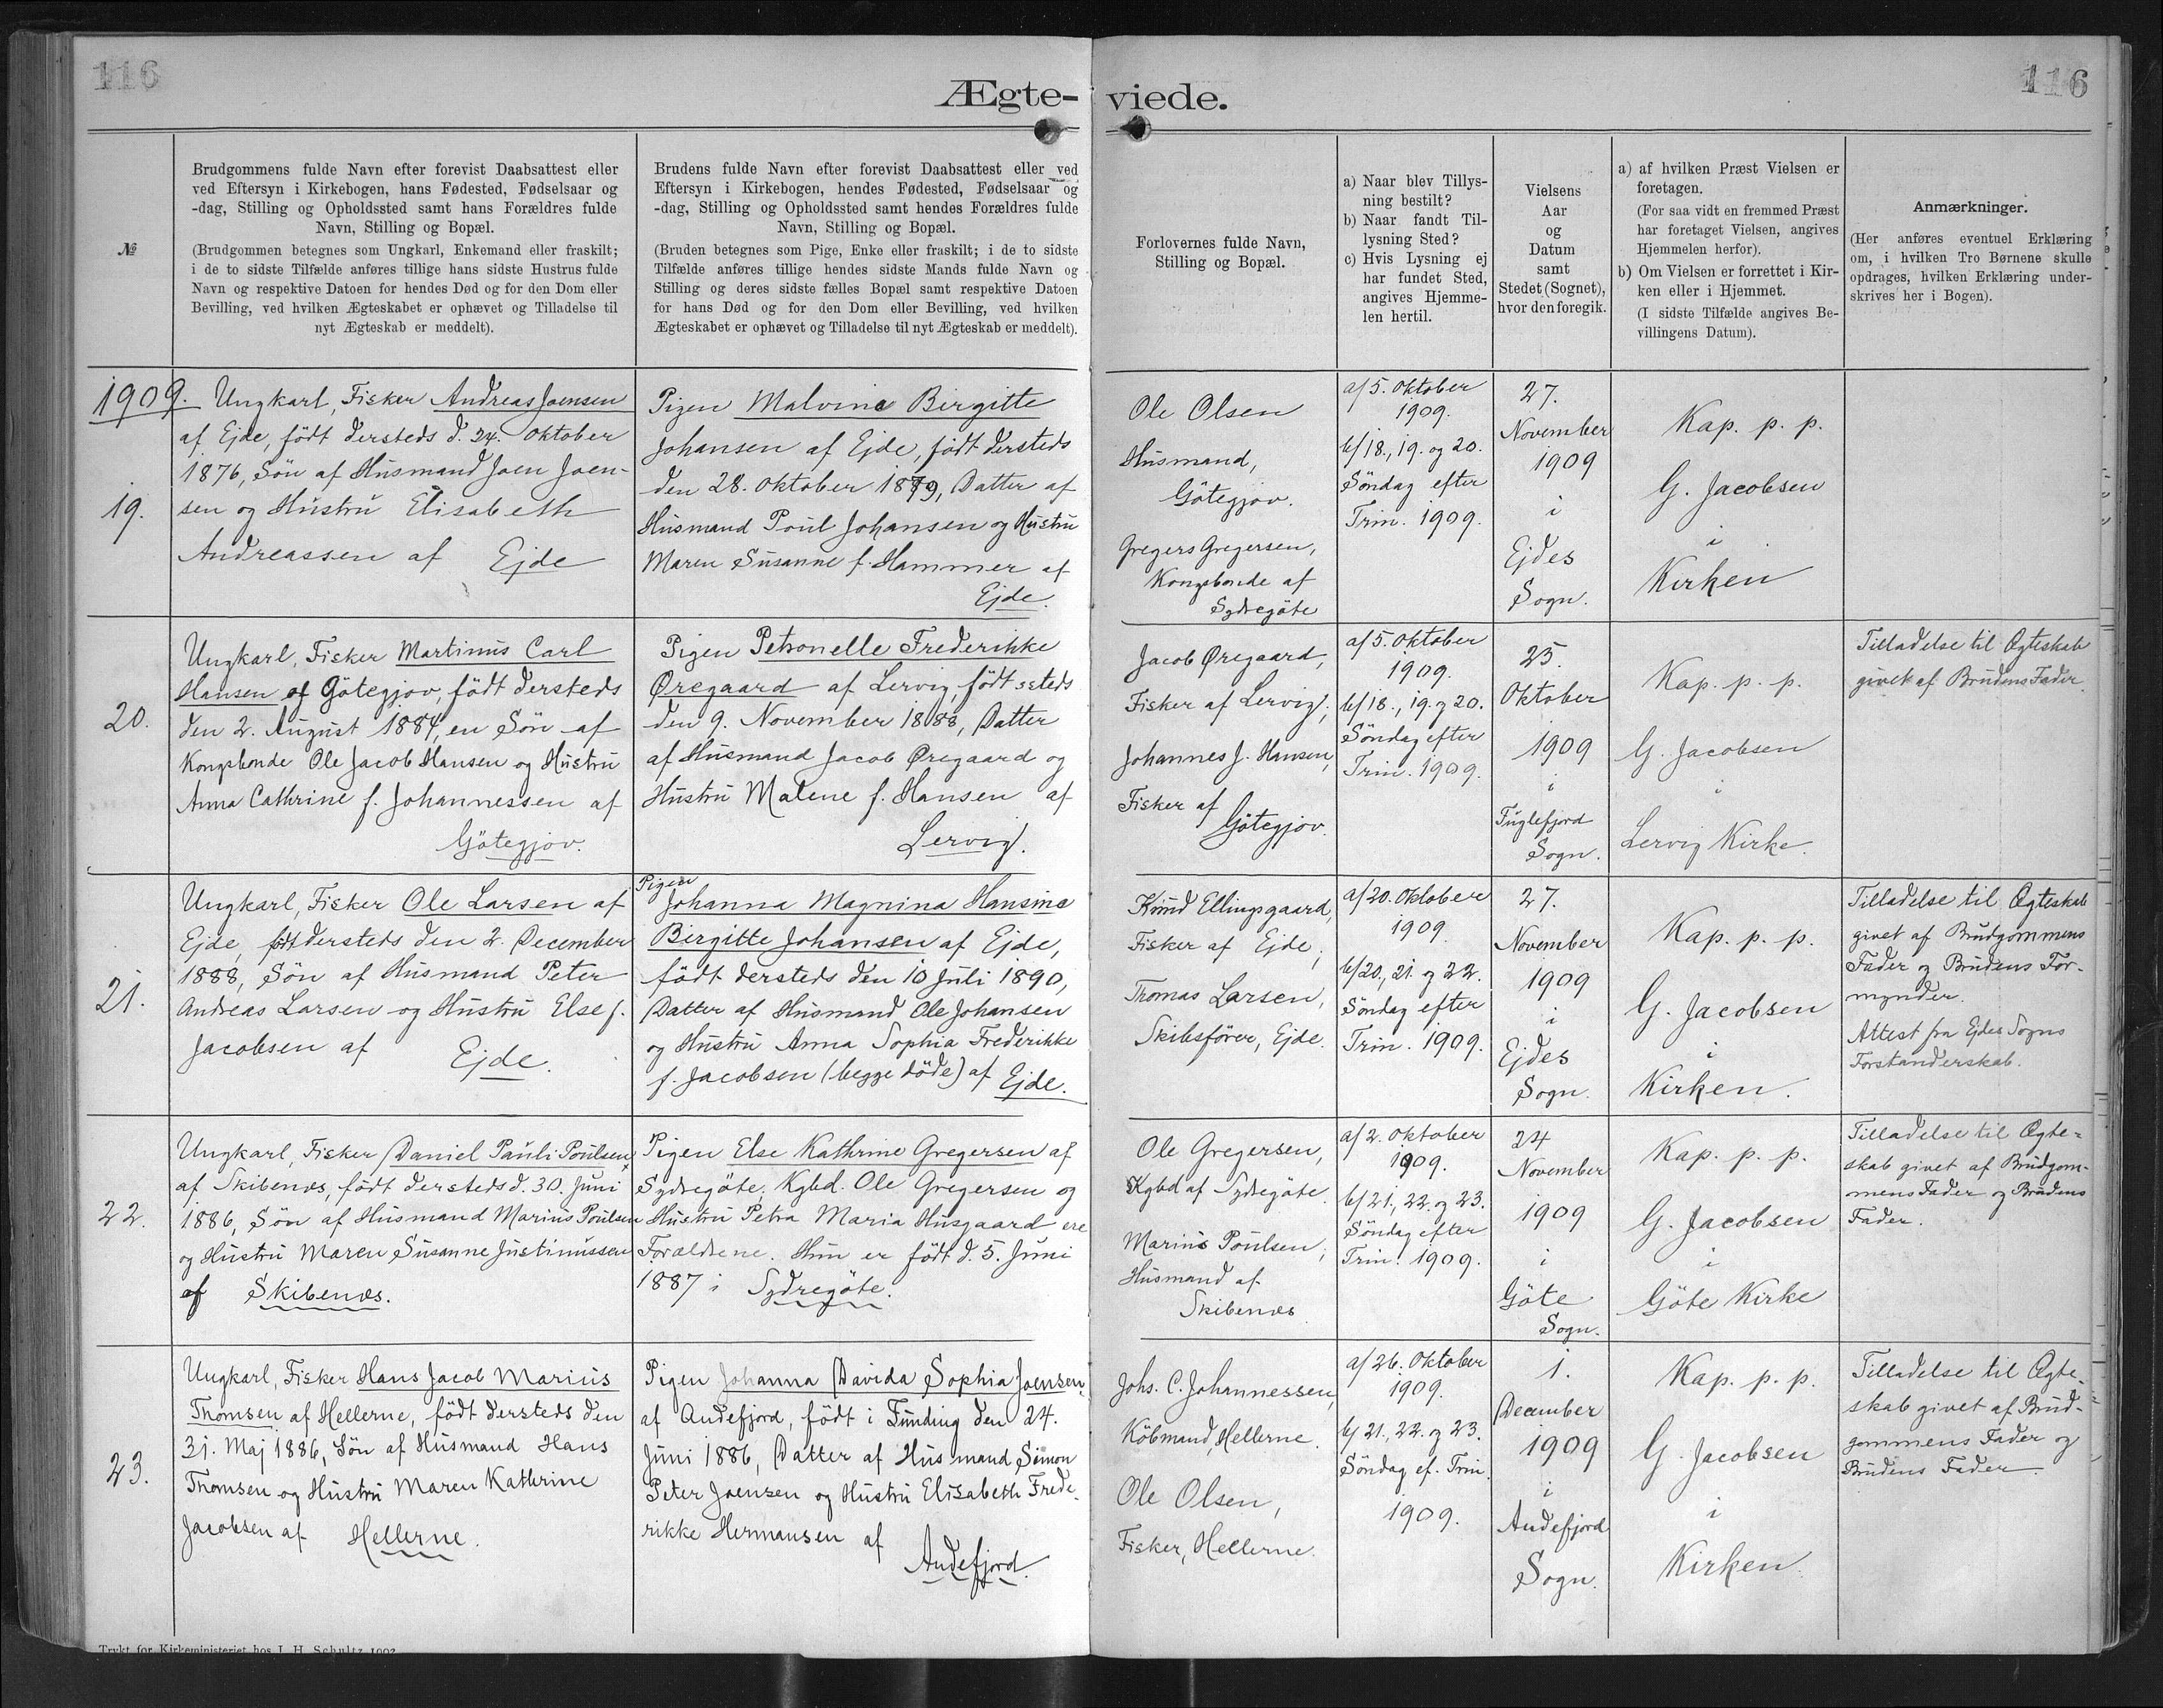 116
116
Ægte-
viede.
№
Brudgommens fulde Navn efter forevist Daabsattest eller
ved Eftersyn i Kirkebogen, hans Fødested, Fødselsaar og
-dag, Stilling og Opholdssted samt hans Forældres fulde
Navn, Stilling og Bopæl.
(Brudgommen betegnes som Ungkarl, Enkemand eller fraskilt;
i de to sidste Tilfælde anføres tillige hans sidste Hustrus fulde
Navn og respektive Datoen for hendes Død og for den Dom eller
Bevilling, ved hvilken Ægteskabet er ophævet og Tilladelse til
nyt Ægteskab er meddelt).
Brudens fulde Navn efter forevist Daabsattest eller ved
Eftersyn i Kirkebogen, hendes Fødested, Fødselsaar og
-dag, Stilling og Opholdssted samt hendes Forældres fulde
Navn, Stilling og Bopæl.
(Bruden betegnes som Pige, Enke eller fraskilt; i de to sidste
Tilfælde anføres tillige hendes sidste Mands fulde Navn og
Stilling og deres sidste fælles Bopæl samt respektive Datoen
for hans Død og for den Dom eller Bevilling, ved hvilken
Ægteskabet er ophævet og Tilladelse til nyt Ægteskab er meddelt).
Forlovernes fulde Navn,
Stilling og Bopæl.
a) Naar blev Tillys-
ning bestilt?
b) Naar fandt Til-
lysning Sted?
c) Hvis Lysning ej
har fundet Sted,
angives Hjemme-
len hertil.
Vielsens
Aar
og
Datum
samt
Stedet (Sognet),
hvor den foregik.
a) af hvilken Præst Vielsen er
foretagen.
(For saa vidt en fremmed Præst
har foretaget Vielsen, angives
Hjemmelen herfor).
b) Om Vielsen er forrettet i Kir-
ken eller i Hjemmet.
(I sidste Tilfælde angives Be-
villingens Datum).
Anmærkninger.
(Her anføres eventuel Erklæring
om, i hvilken Tro Børnene skulle
opdrages, hvilken Erklæring under-
skrives her i Bogen).
1909.
19.
Ungkarl, Fisker Andreas Joensen
af Ejde, født dersteds d. 24. Oktober
1876, Søn af Husmand Joen Joen-
sen og Hustru Elisabeth
Andreassen af Ejde
Pigen Malvina Birgitte
Johansen af Ejde, født dersteds
den 28. Oktober 1879, Datter af
Husmand Poul Johansen og Hustru
Maren Susanne f. Hammer af
Ejde.
Ole Olsen
Husmand,
Götegjov.
Gregers Gregersen,
Kongsbonde af
Sydregöte
a/ 5. Oktober
1909.
b/ 18., 19. og 20.
Söndag efter
Trin. 1909.
27.
November
1909
i
Ejdes
Sogn.
Kap. p. p.
G. Jacobsen
i
Kirken
20.
Ungkarl, Fisker Martinus Carl
Hansen af Götegjov, födt dersteds
den 2. August 1884, en Sön af
Kongsbonde Ole Jacob Hansen og Hustru
Anna Cathrine f. Johannessen af
Götegjov.
Pigen Petronelle Frederikke
Øregaard af Lervig, födt ssteds
den 9. November 1888, Datter
af Husmand Jacob Øregaard og
Hustru Malene f. Hansen af
Lervig.
Jacob Øregaard,
Fisker af Lervig;
Johannes J. Hansen,
Fisker af
Götegjov.
a/ 5. Oktober
1909.
b/ 18., 19. og 20.
Söndag efter
Trin. 1909.
25.
Oktober
1909
i
Fuglefjord
Sogn.
Kap. p. p.
G. Jacobsen
i
Lervig Kirke.
Tilladelse til Ægteskab
givet af Brudens Fader.
21.
Ungkarl, Fisker Ole Larsen af
Ejde, födt dersteds den 2. December
1888, Sön af Husmand Peter
Andreas Larsen og Hustru Else f.
Jacobsen af Ejde.
Pigen
Johanna Magnina Hansina
Birgitte Johansen af Ejde,
födt dersteds den 10 Juli 1890,
Datter af Husmand Ole Johansen
og Hustru Anna Sophia Frederikke
f. Jacobsen (begge döde) af Ejde.
Knud Ellingsgaard,
Fisker af Ejde;
Thomas Larsen,
Skibsförer, Ejde.
a/ 20. Oktober
1909.
b/ 20., 21. og 22.
Söndag efter
Trin. 1909.
27.
November
1909
i
Ejdes
Sogn.
Kap. p. p.
G. Jacobsen
i
Kirken.
Tilladelse til Ægteskab
givet af Brudgommens
Fader og Brudens For-
mynder.
Attest fra Ejdes Sogns
Forstanderskab.
22.
Ungkarl, Fisker Daniel Pauli Poulsen
af Skibenæs, födt dersteds d. 30. Juni
1886, Sön af Husmand Marius Poulsen
og Hustru Maren Susanne Justinussen
af Skibenæs.
Pigen Else Kathrine Gregersen af
Sydregöte. Kgbd. Ole Gregersen og
Hustru Petra Maria Husgaard ere
Forældrene. Hun er födt d. 5. Juni
1887 i Sydregöte.
Ole Gregersen,
Kgbd af Sydregöte.
Marius Poulsen,
Husmand af
Skibenæs
a/ 2. Oktober
1909.
b/ 21., 22. og 23.
Söndag efter
Trin. 1909.
24
November
1909
i
Göte
Sogn.
Kap. p. p.
G. Jacobsen
i
Göte Kirke
Tilladelse til Ægte-
skab givet af Brudgom-
mens Fader og Brudens
Fader.
23.
Ungkarl, Fisker Hans Jacob Marius
Thomsen af Hellerne, födt dersteds den
31. Maj 1886, Sön af Husmand Hans
Thomsen og Hustru Maren Kathrine
Jacobsen af Hellerne.
Pigen Johanna Davida Sophia Joensen
af Andefjord, födt i Funding den 24.
Juni 1886, Datter af Husmand Simon
Peter Joensen og Hustru Elisabeth Frede-
rikke Hermansen af
Andefjord.
Johs. C. Johannessen,
Köbmand, Hellerne.
Ole Olsen,
Fisker, Hellerne.
a/ 26. Oktober
1909.
b/ 21., 22. og 23.
Söndag ef. Trin.
1909.
1.
December
1909
i
Andefjord
Sogn.
Kap. p. p.
G. Jacobsen
i
Kirken.
Tilladelse til Ægte-
skab givet af Brud-
gommens Fader og
Brudens Fader.
Trykt for Kirkeministeriet hos J. H. Schultz 1903